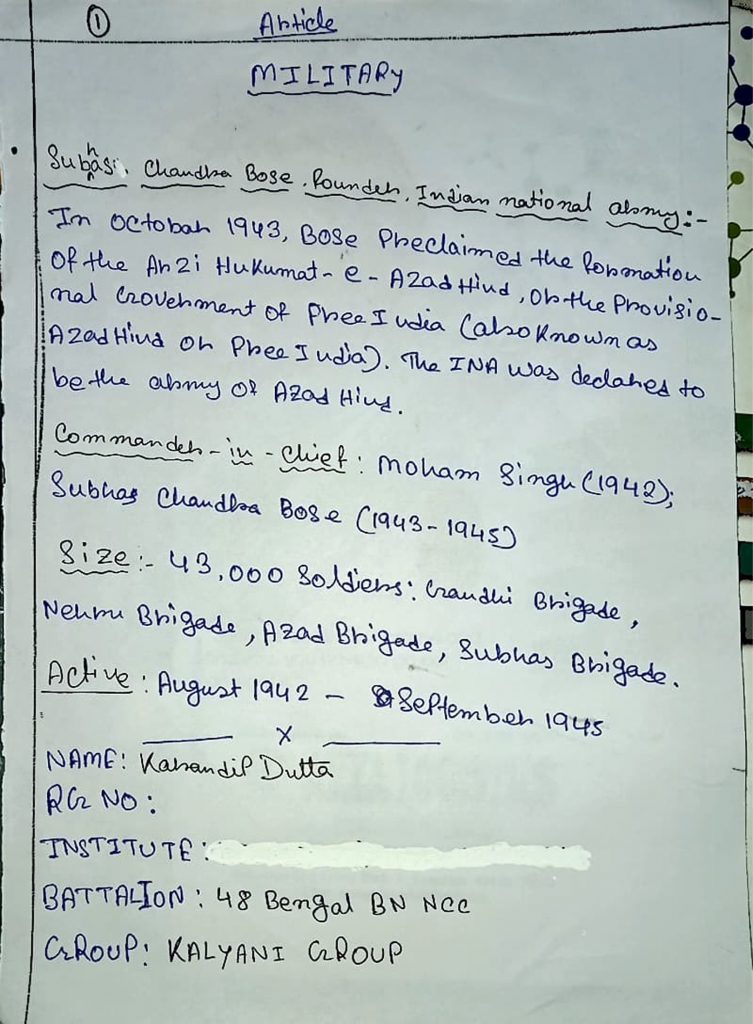 ①
Article
MILITARY
Subhas Chandra Bose. Founder, Indian national army:-
In Octobar 1943, Bose Preclaimed the formation
Of the Arzi Hukumat-e-Azad Hind, Or the Provisio-
nal Government of Free India (also Known as
Azad Hind or Free India). The INA was declared to
be the army of Azad Hind.
Commander-in-Chief: Moham Singh (1942);
Subhas Chandra Bose (1943-1945)
Size:- 43,000 Soldiers: Gandhi Brigade,
Nehru Brigade, Azad Brigade, Subhas Brigade.
Active: August 1942 - September 1945
x
NAME: Karandip Dutta
RG NO:
INSTITUTE:
BATTALION: 48 Bengal BN NCC
GROUP: KALYANI GROUP